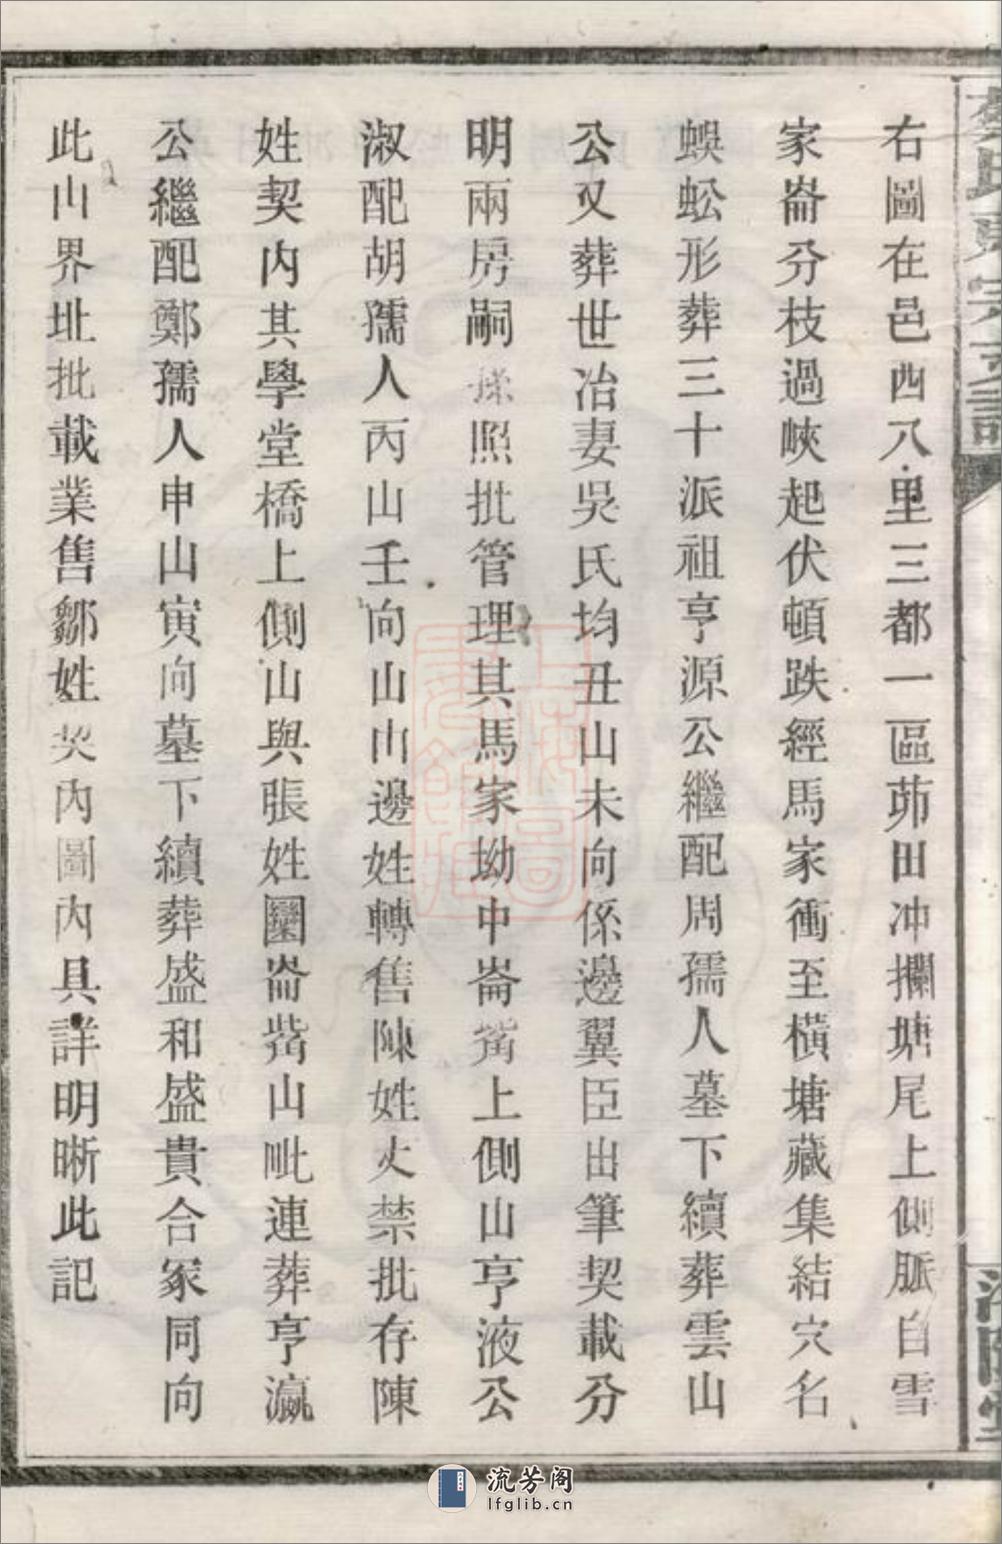 右圖在邑西八里三都一區茆田冲攔塘尾上側脈自雪
家崙分枝過峽起伏頓跌經馬家衝至橫塘藏集結穴名
蜈蚣形葬三十派祖亨源公繼配周孺人墓下續葬雲山
公又葬世冶妻吳氏均丑山未向係邊翼臣出筆契載分
明兩房嗣孫照批管理其馬家坳中崙嘴上側山亨液公
淑配胡孺人丙山壬向山山邊姓轉售陳姓火禁批存陳
姓契內其學堂橋上側山與張姓圞崙嘴山毗連葬亨瀛
公繼配鄭孺人申山寅向墓下續葬盛和盛貴合冢同向
此山界址批載業售鄒姓契內圖內具詳明晰此記
流芳阁
lfglib.cn